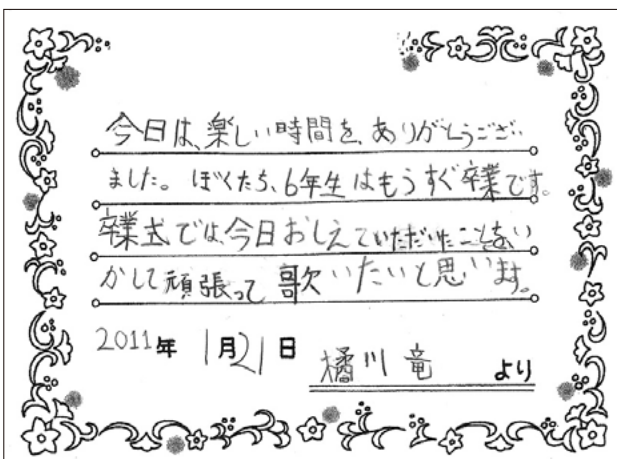 今日は、楽しい時間を、ありがとうござい
ました。ぼくたち、6年生はもうすぐ卒業です。
卒業式では、今日おしえていただいたことを、い
かして頑張って歌いたいと思います。
2011年 1月21日
橘川 竜 より